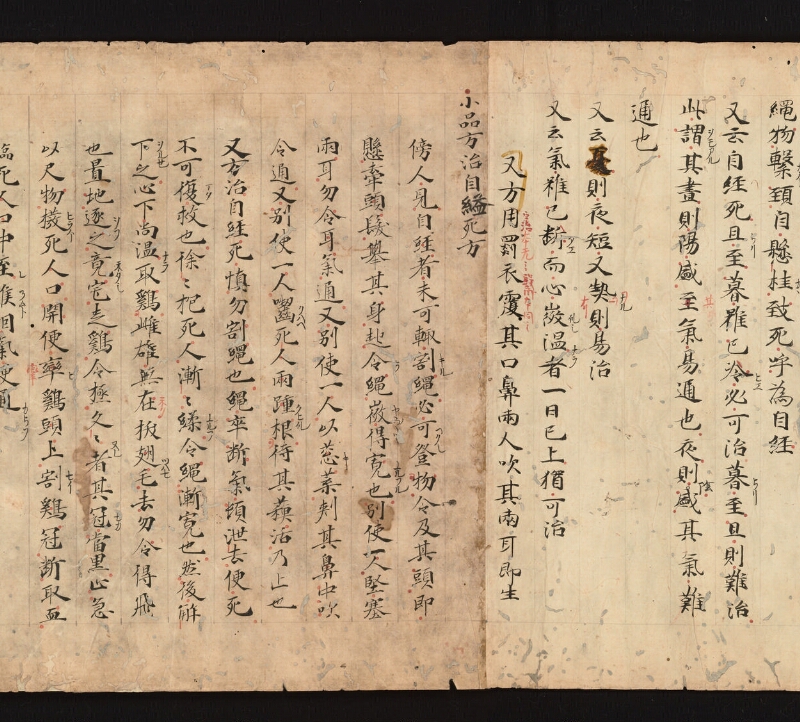 繩物繫頸自懸挂致死呼為自経
又云自経死旦至暮雖已冷必可治暮至旦則難治
此謂其晝則陽盛至氣易通也夜則盛其氣難
通也
又云則夜短又熱則易治
又云氣雖已断而心微温者一日已上猶可治
又方用罽衣覆其口鼻兩人吹其兩耳即生
小品方治自縊死方
傍人見自経者未可輒割繩必可登物令及其頭即
懸牽頭髮舉其身起令繩微得寛也別使一人堅塞
兩耳勿令耳氣通又別使一人以葱葉刾其鼻中吹
令通又別使一人齧死人兩踵根待其蘓活乃止也
又方治自経死慎勿割繩也繩卒断氣頓泄去便死
不可復救也徐〻抱死人漸〻緩令繩漸寛也然後解
下之心下尚温取鷄雌雄無在抜翅毛去勿令得飛
也置地逐之竟宅走鷄令極久〻者其冠當黒止急
以尺物撥死人口開便牽鷄頭上割鷄冠断取血
臨死人口中至喉咽氣便通